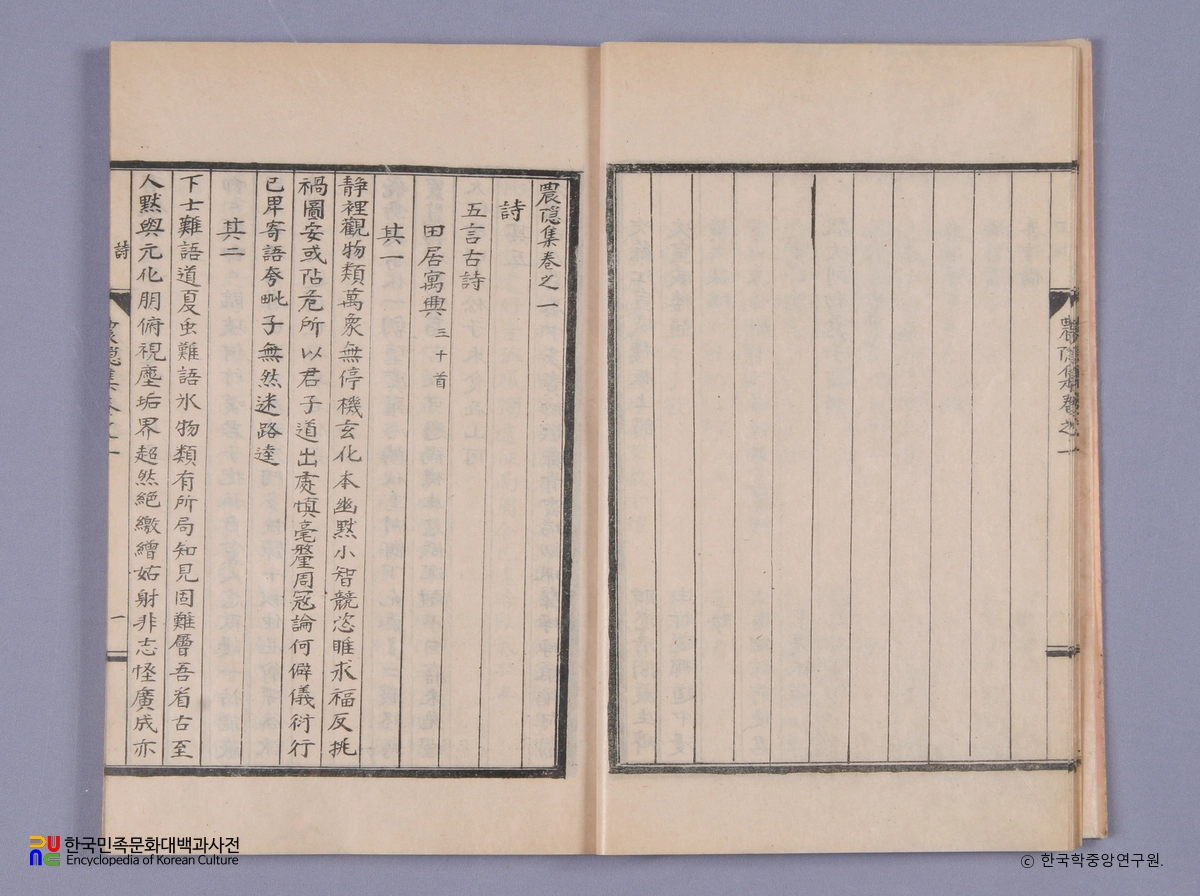 農隱集卷之一
詩
五言古詩
田居寓興三十首
其一
靜裡觀物類萬象無停機玄化本幽默小智競恣睢求福反挑
禍圖安或阽危所以君子道出處愼毫釐周冠論何僻儀衍行
已卑寄語夸毗子無然迷路逵
其二
下士難語道夏虫難語氷物類有所局知見固難層吾看古至
人黙與元化朋俯視塵垢界超然絶繳繒姑射非志怪廣成亦
詩
農隱集卷之一
一
農隱集卷之一
한국민족문화대백과사전
Encyclopedia of Korean Culture
© 한국학중앙연구원.